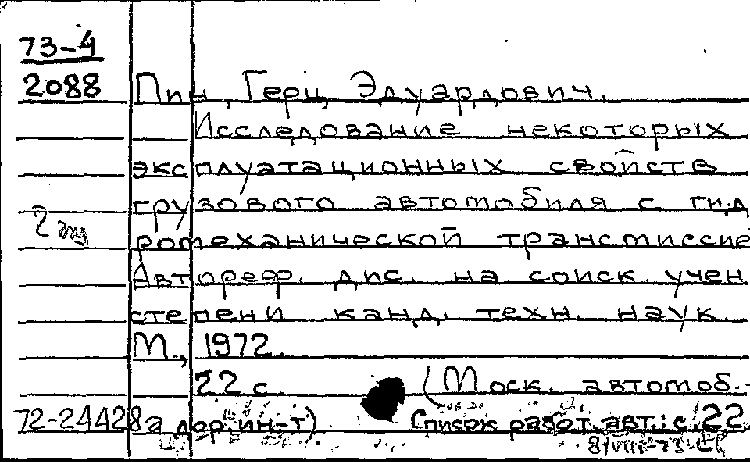 73-4
2088 Пин, Герц Эдуардович.
Исследование некоторых
эксплуатационных свойств
грузового автомобиля с гид
ромеханической трансмиссие
Автореф. дис. на соиск учен
степени канд. техн. наук
М., 1972.
22 с. (Моск. автомоб.-
72-24428 а дор. ин-т) Список работ авт.: с. 22